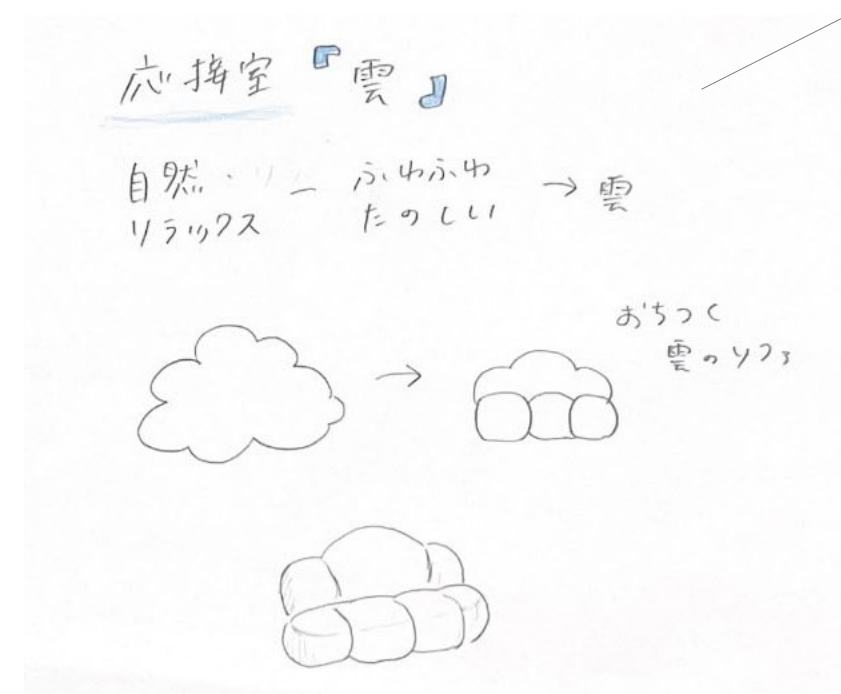 応接室『雲』
自然・リラックス ー ふわふわ たのしい → 雲
おちつく
雲のソファ